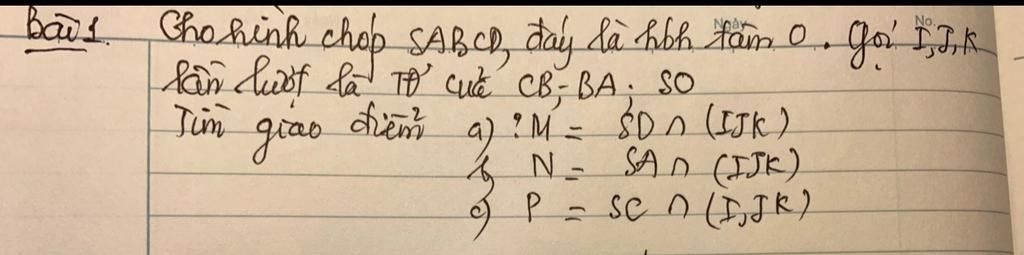 Bài 1. Cho hình chóp SABCD, đáy là hbh tâm O. Gọi I, J, K
lần lượt là TĐ của CB; BA; SO
Tìm giao điểm a) ? M = SD ∩ (IJK)
b) N = SA ∩ (IJK)
c) P = SC ∩ (I,JK)
Ngày
No.